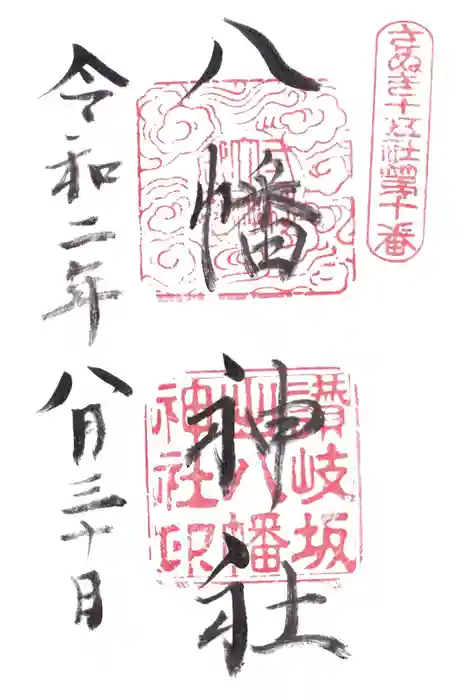 さぬき十五社第十番
八幡神社
讃岐坂
出八幡
神社印
令和二年八月三十日